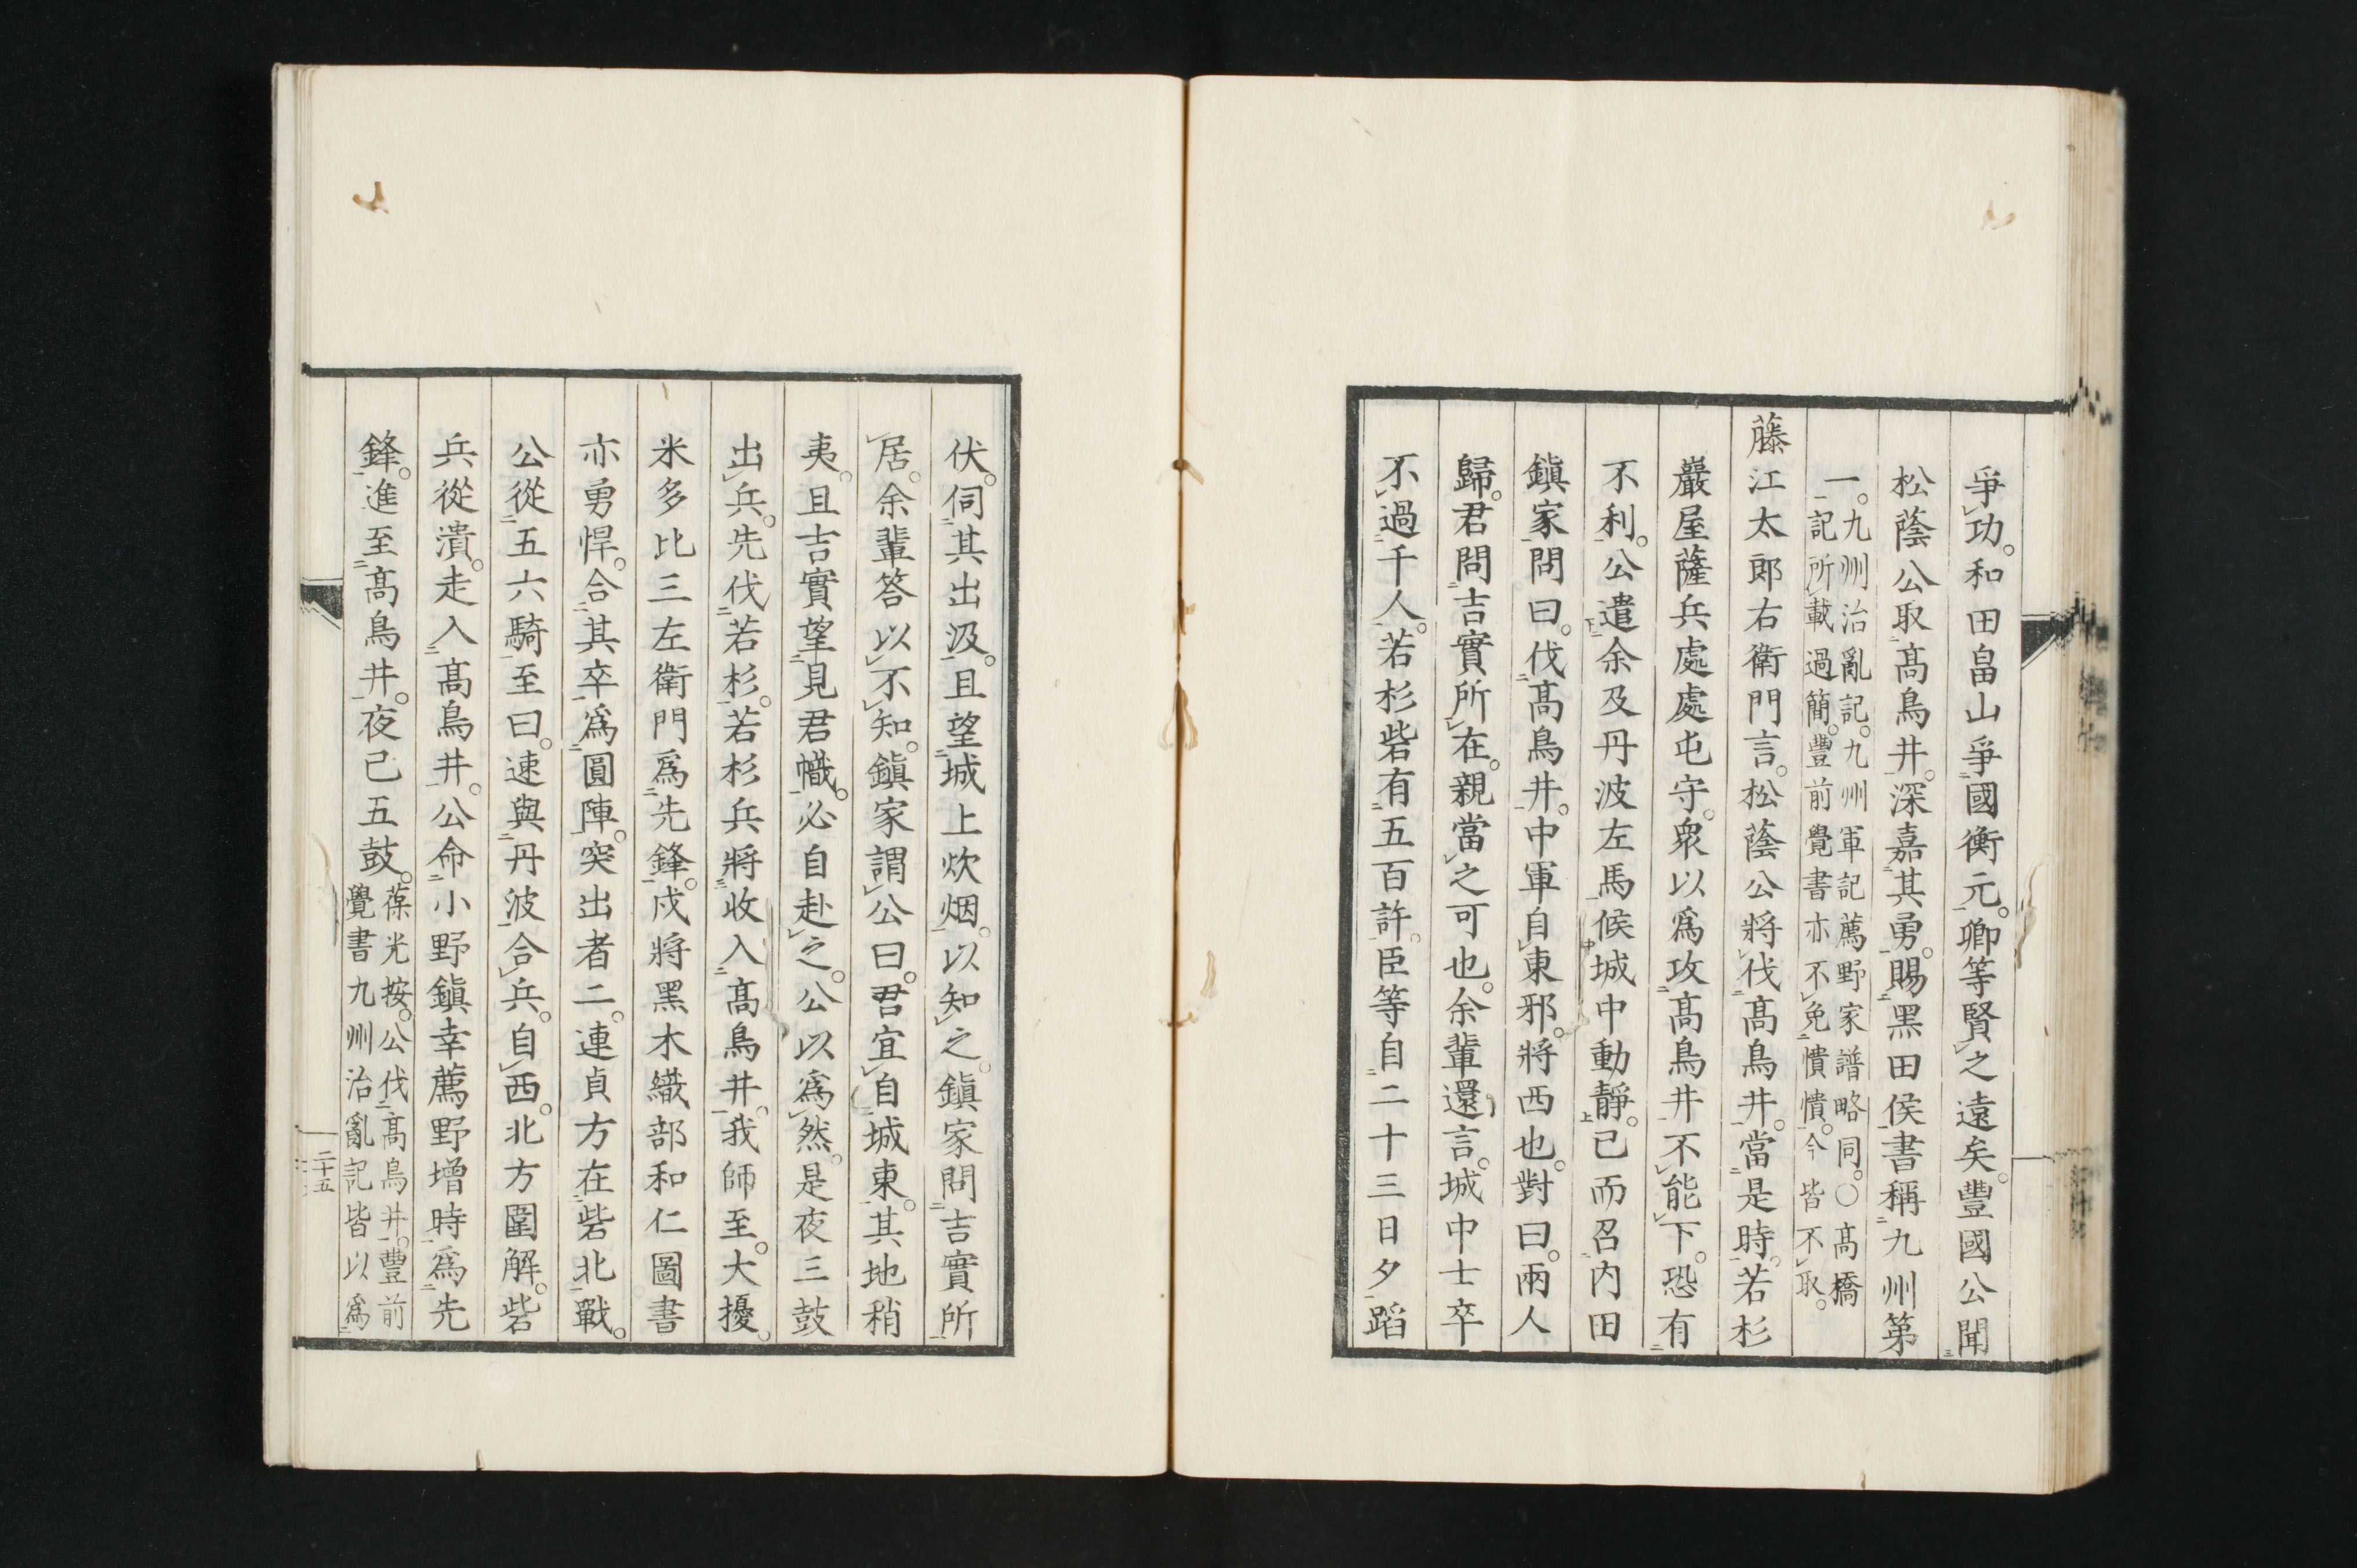 爭功。和田畠山爭國衡元。卿等賢之遠矣。豐國公聞
松蔭公取高鳥井。深嘉其勇。賜黑田侯書稱九州第
一。九州治亂記。九州軍記薦野家譜略同。○高橋
記所載過簡。豐前覺書亦不免憒憒。今皆不取。
藤江太郎右衛門言。松蔭公將伐高鳥井。當是時。若杉
巖屋薩兵處處屯守。衆以爲攻高鳥井不能下。恐有
不利。公遣余及丹波左馬候城中動靜。已而召內田
鎭家問曰。伐高鳥井。中軍自東邪。將西也。對曰。兩人
歸。君問吉實所在。親當之可也。余輩還言。城中士卒
不過千人。若杉砦有五百許。臣等自二十三日夕蹈
伏。伺其出汲。且望城上炊烟。以知之。鎭家問吉實所
居。余輩答以不知。鎭家謂公曰。君宜自城東。其地稍
夷。且吉實望見君幟。必自赴之。公以爲然。是夜三鼓
出兵。先伐若杉。若杉兵將收入高鳥井。我師至。大擾。
米多比三左衛門爲先鋒。戍將黑木織部和仁圖書
亦勇悍。合其卒爲圓陣。突出者二。連貞方在砦北戰。
公從五六騎至曰。速與丹波合兵。自西。北方圍解。砦
兵從潰。走入高鳥井。公命小野鎭幸薦野增時爲先
鋒。進至高鳥井。夜已五鼓。葆光按。公伐高鳥井。豐前
覺書九州治亂記皆以爲
二十五